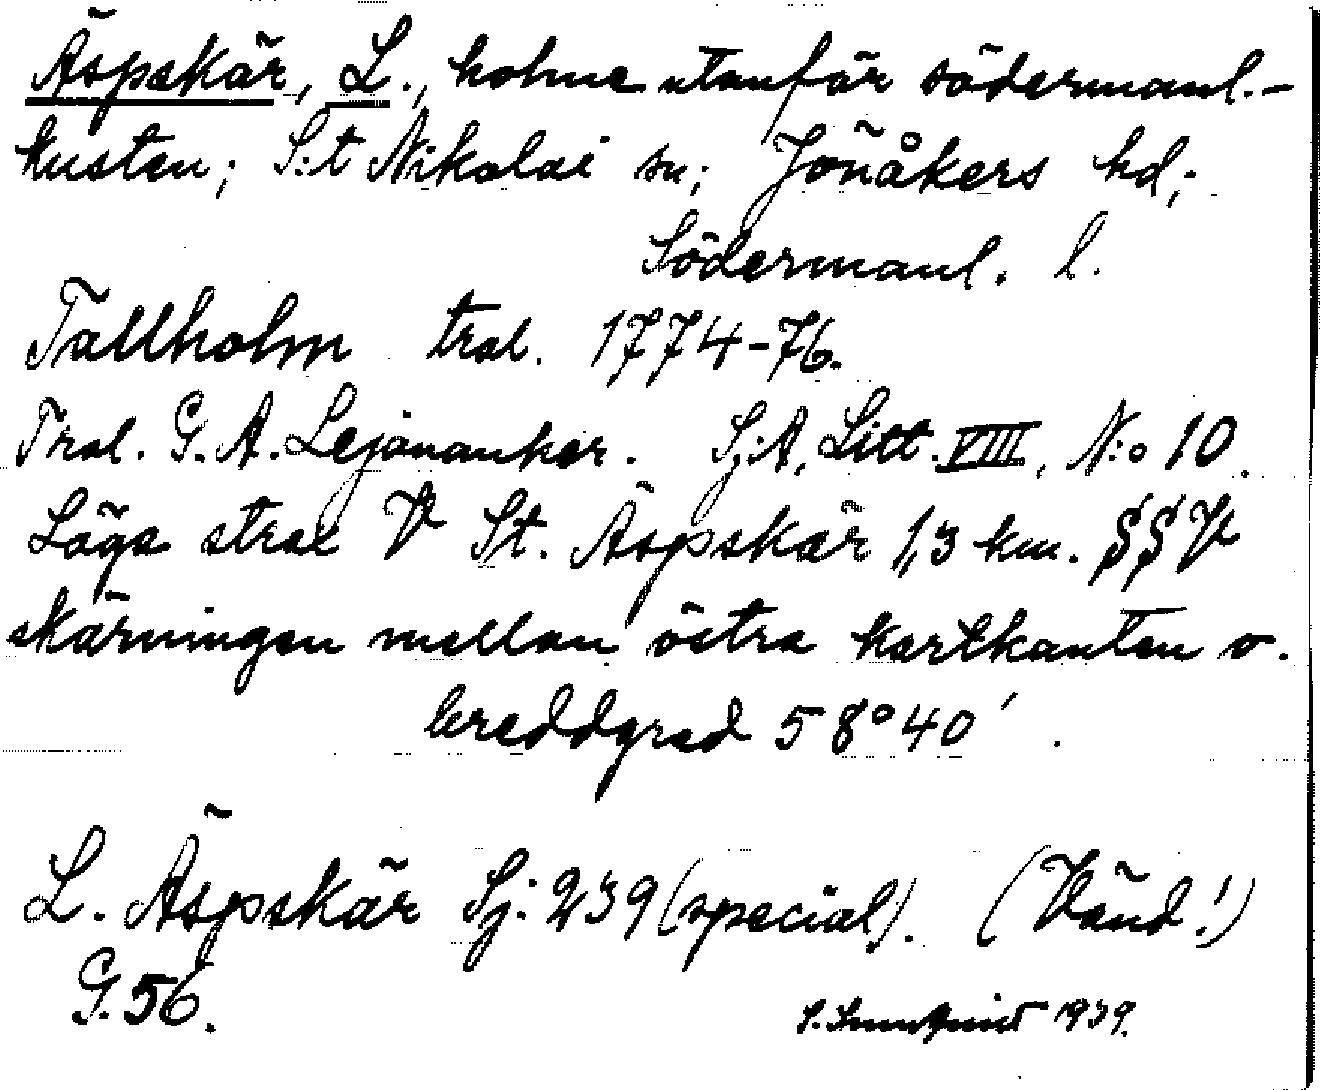 Äspskär, L., holme utanför södermanl.-
kusten; S:t Nikolai sn; Jönåkers hd;
Södermanl. l.
Tallholm tral. 1774-76.
Tral. G. A. Lejonanker. Sj.A, Litt. VIII, N:o 10.
Läga strax V St. Äspskär 1,3 km. §§ V
skärningen mellan östra kartkanten o.
breddgrad 58°40'.
L. Äspskär Sj: 239 (special). (Vänd!)
G. 56.
1939.